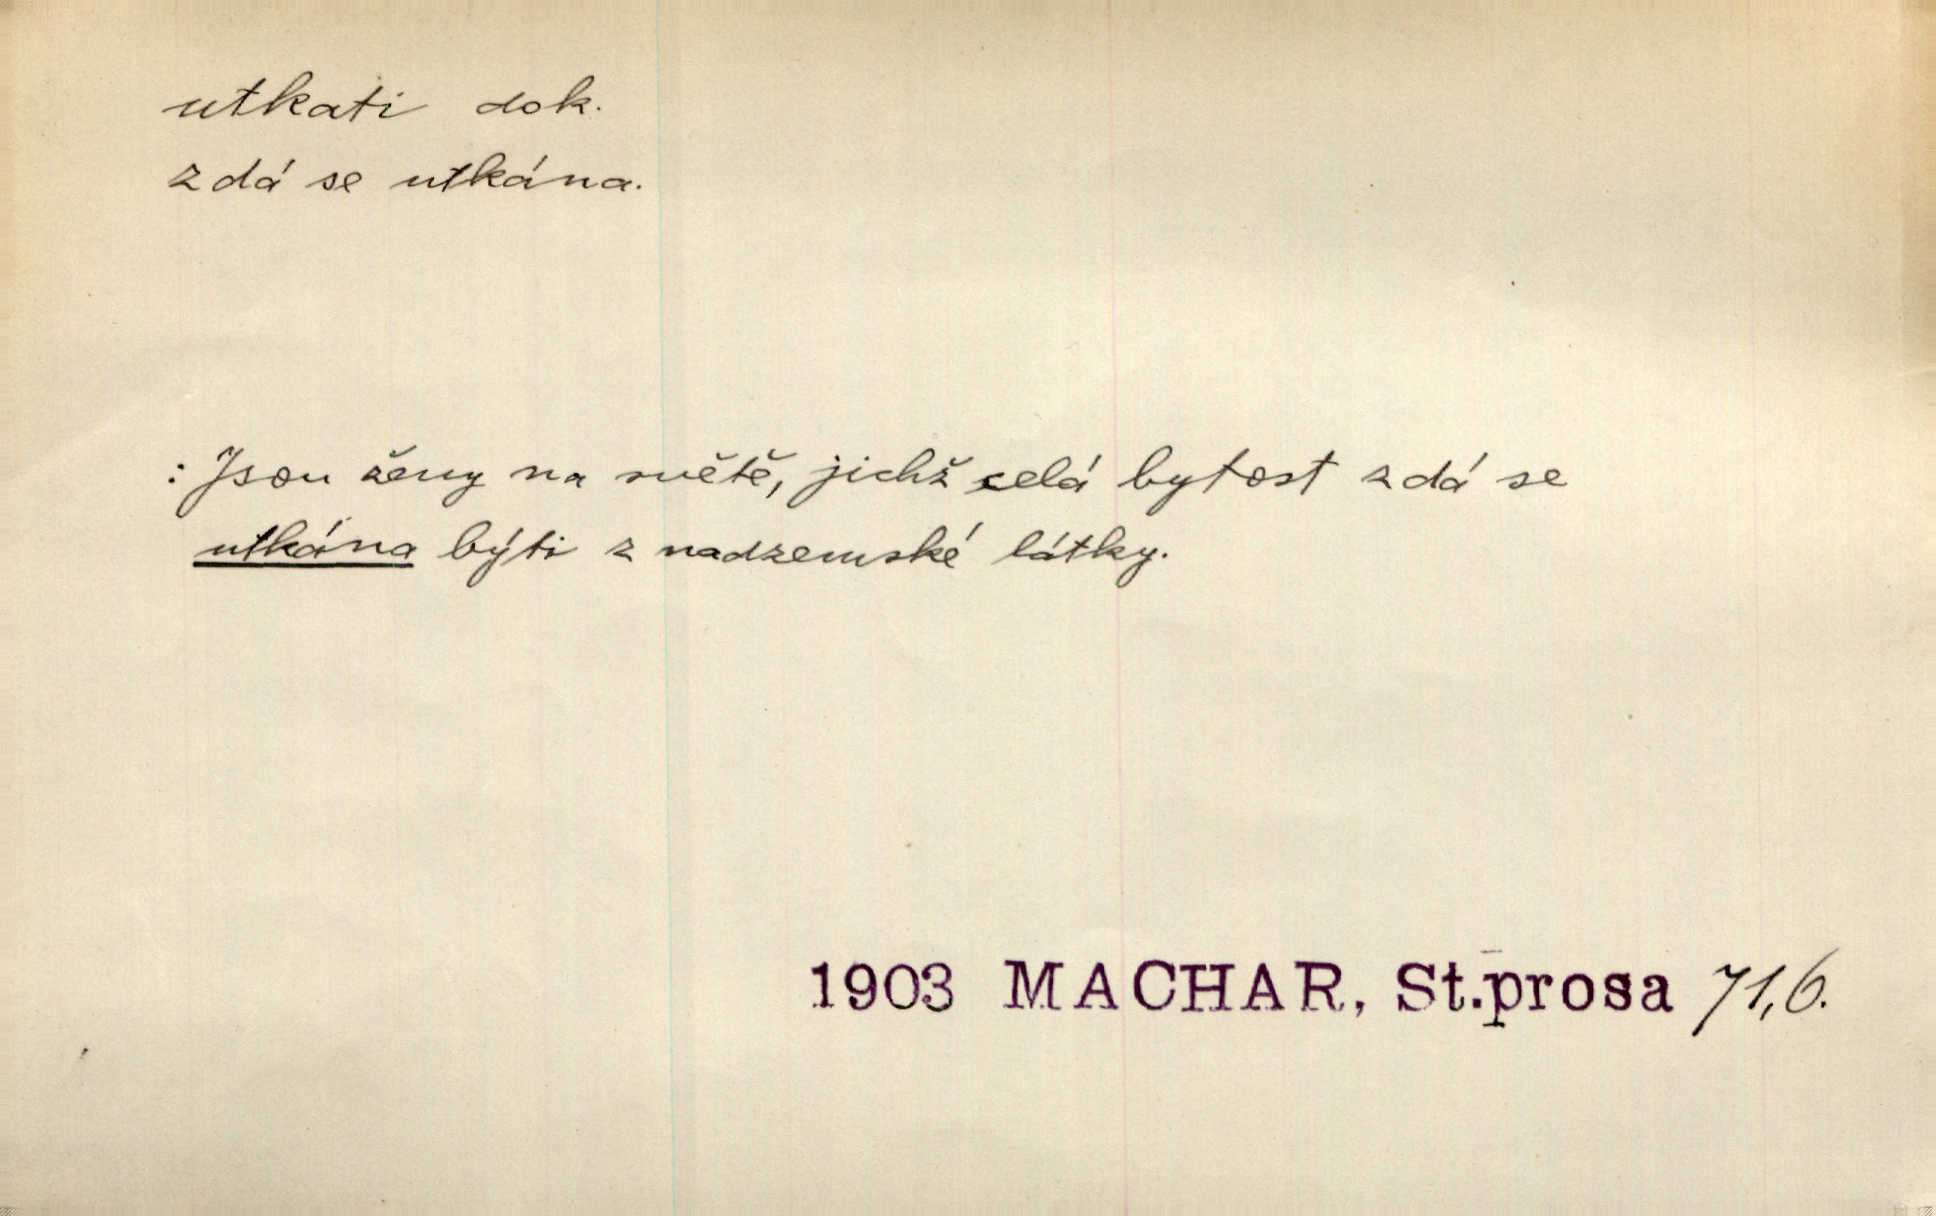 utkati dok.
zdá se utkána.
: Jsou ženy na světě, jichž celá bytost zdá se
utkána býti z nadzemské látky.
1903 MACHAR, St.prosa 71,6.